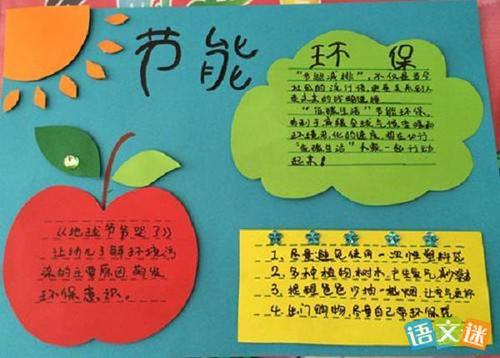 节能
环保
"节能减排",不仅是当今
社会的流行语,更是关系到人
类未来的战略选择
"低碳生活"节能环保,
有利于减缓全球气候变暖和
环境恶化的速度
"低碳生活"一起行动
起来!
《地球爷爷哭了》
让幼儿了解环境污
染的主要原因,激发
环保意识。
1、尽量避免使用一次性塑料袋
2、多种植物树木,产生氧气,减少
3、提醒爸爸少抽一枝烟,让空气更好
4、出门购物,尽量自己带环保袋
语文迷